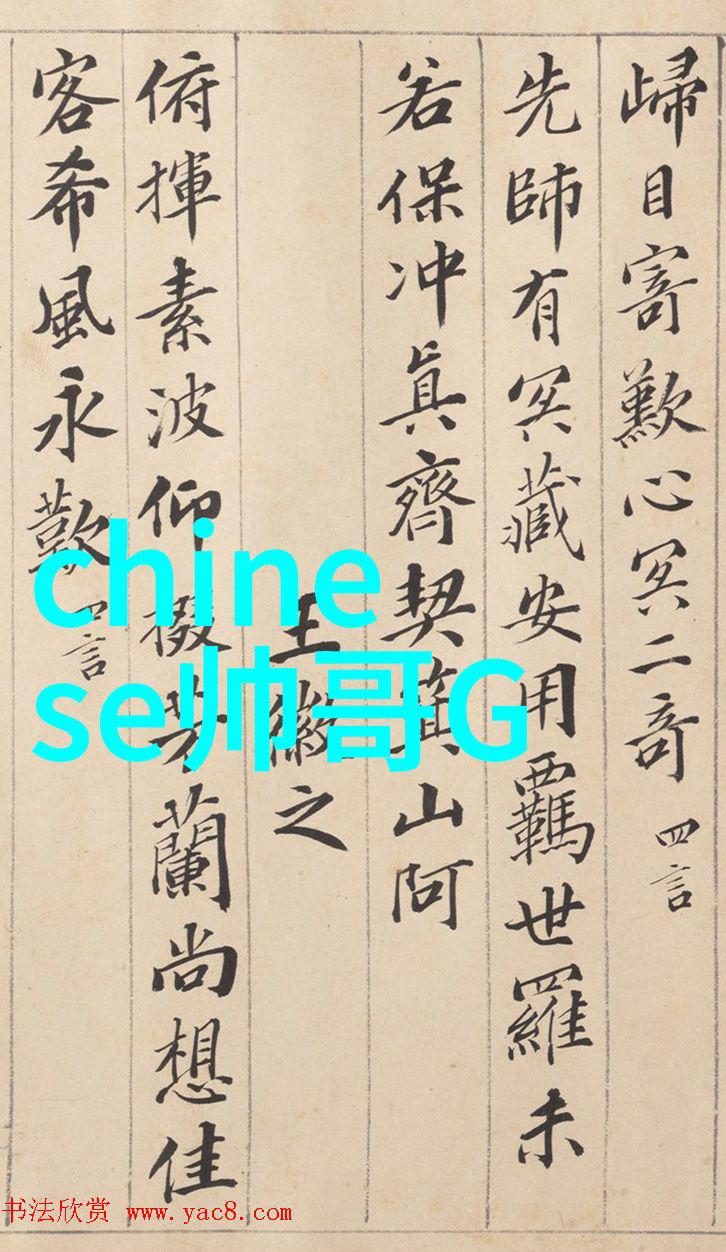 歸目寄歎心冥二奇 四言
先師有冥藏安用羈世羅未
若保冲眞齊契箕山阿
王徽之
俯揮素波仰掇芳蘭尚想佳
客希風永歎 四言
chine
se帅哥G
书法欣赏 www.yac8.com